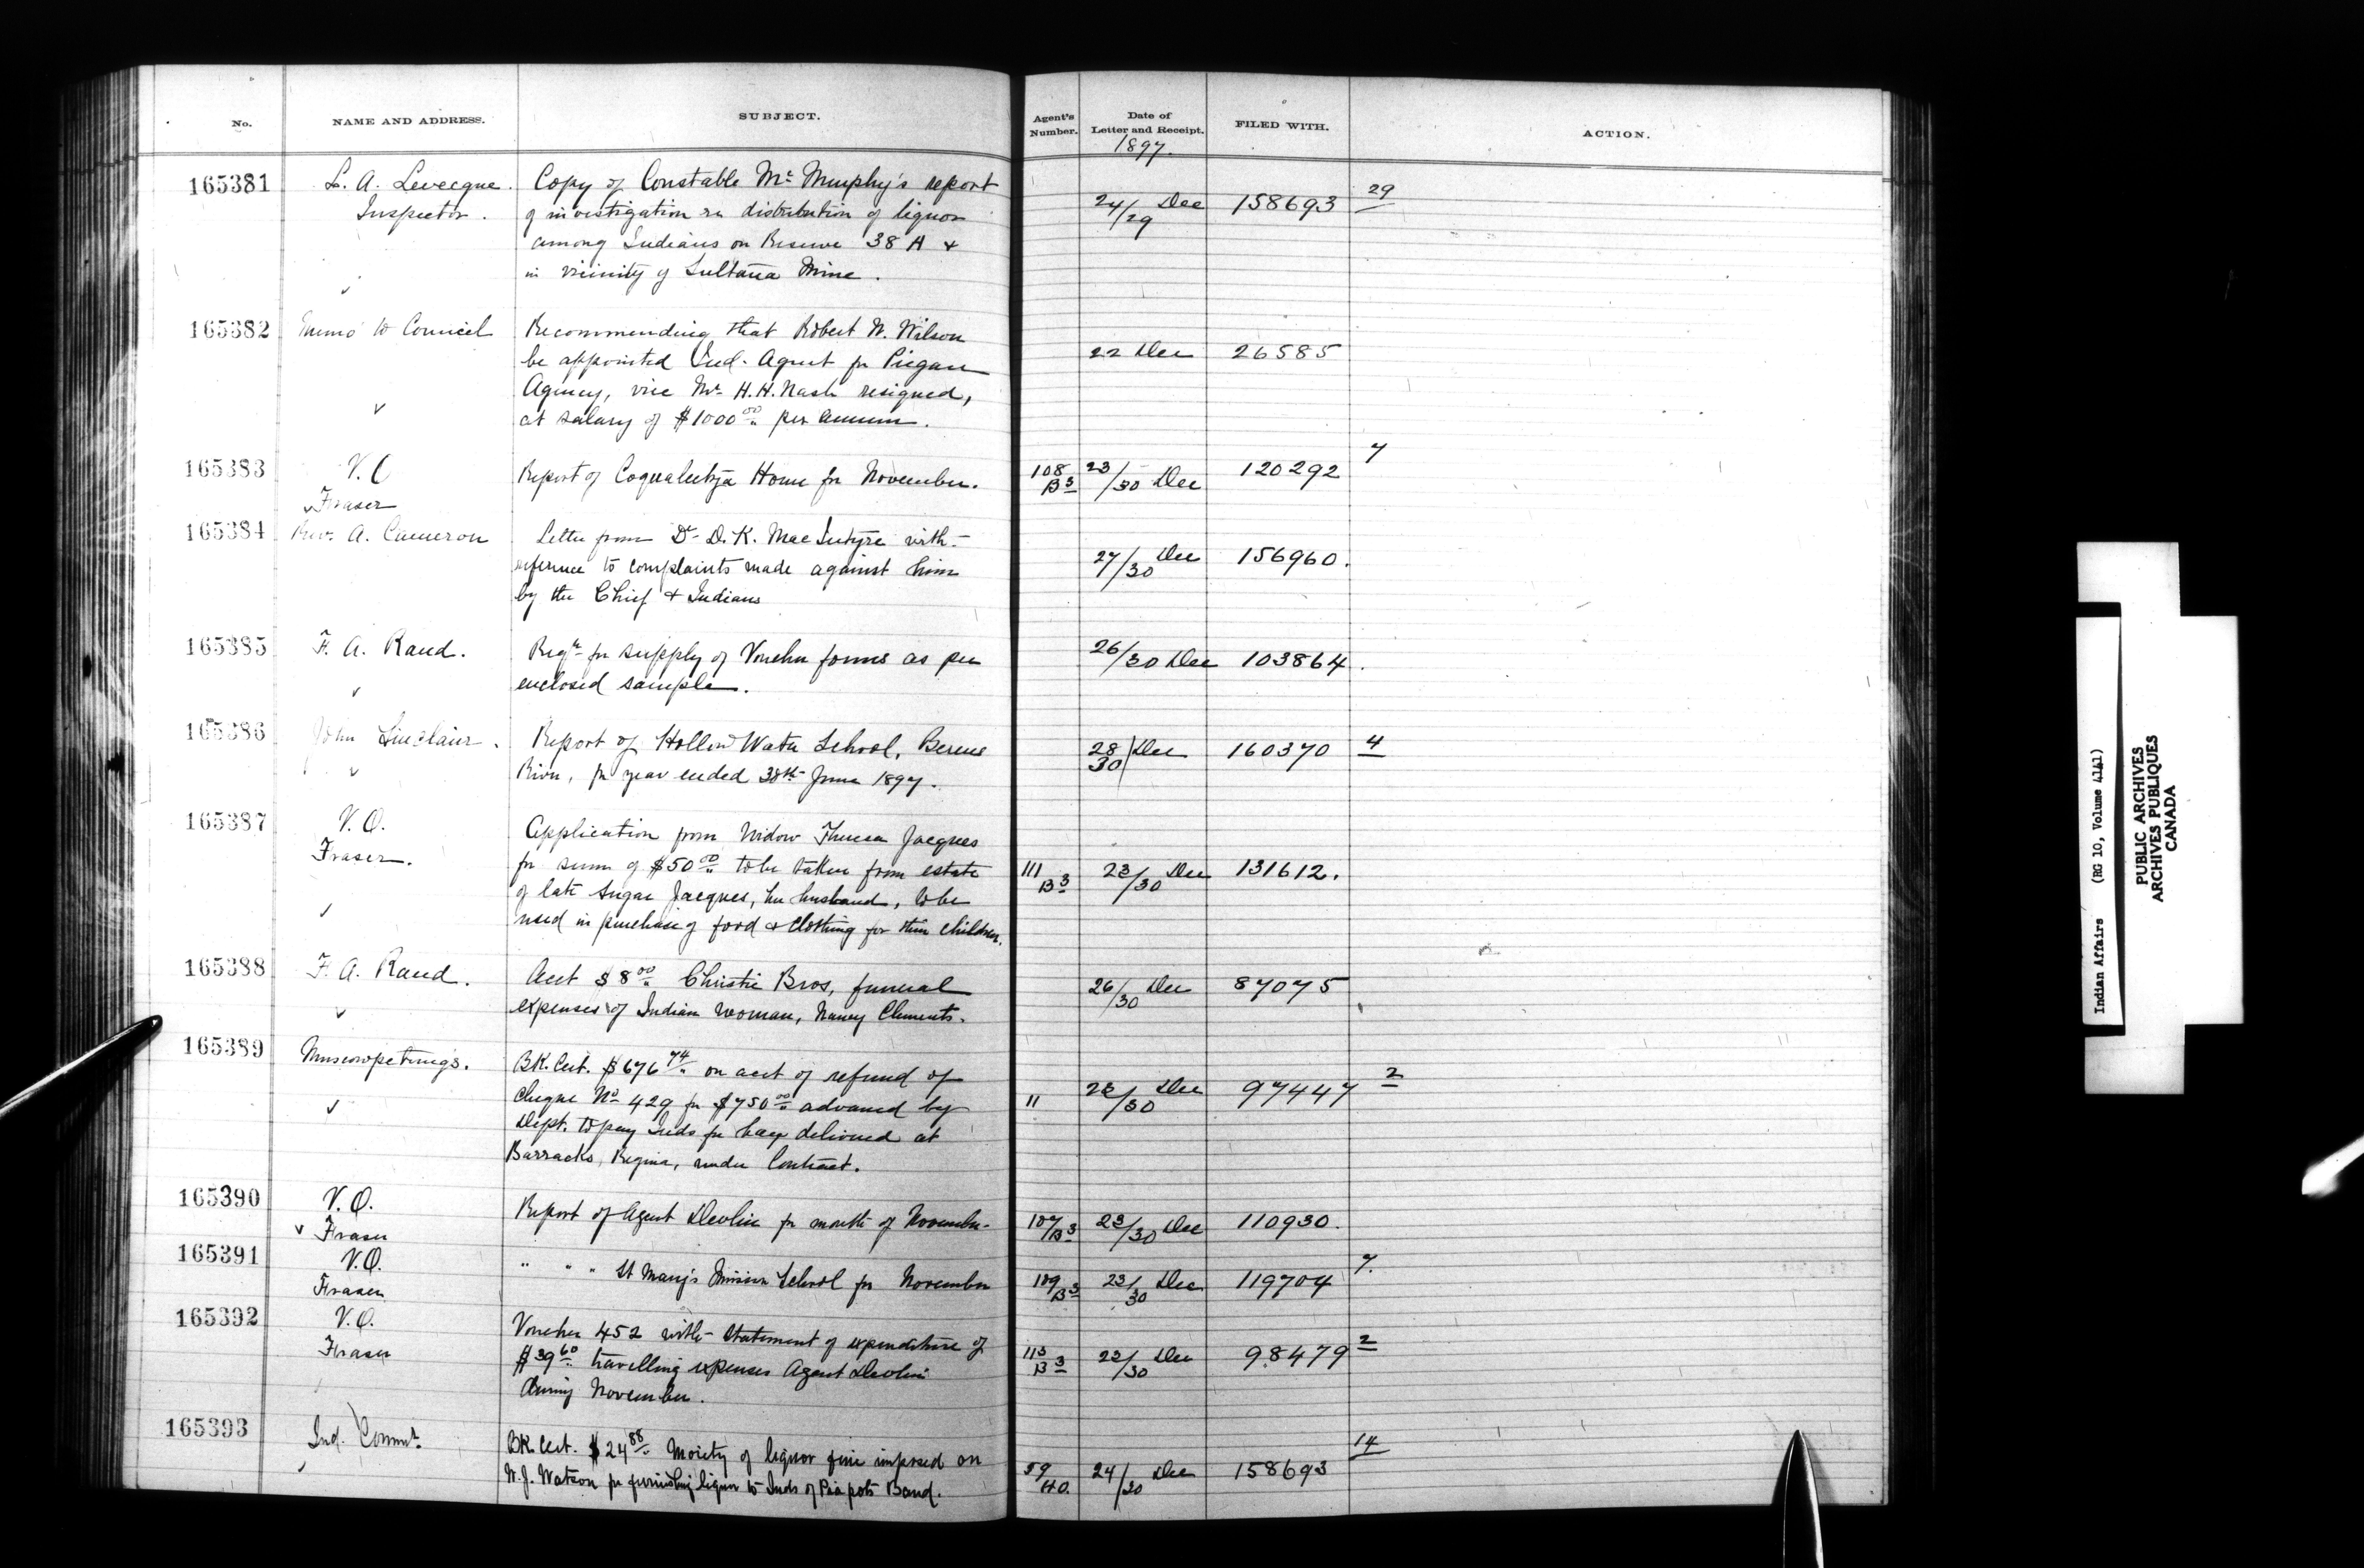 No. NAME AND ADDRESS. SUBJECT. Agent's Number. Date of Letter and Receipt. FILED WITH. ACTION.
1897.
165381 L. A. Levecque. Copy of Constable Mc Murphy's report
Inspector. of investigation re distribution of liquor 24/29 Dec 158693 29
among Indians on Reserve 38 A &
in vicinity of Sultana Mine.
165382 Memo to Council Recommending that Robert N. Wilson
be appointed Ind. Agent for Piegan 22 Dec 26585
Agency, vice Mr H.H. Nash resigned,
at salary of $1000 00 per annum.
165383 V.O. Report of Coqualeetza Home for November. 108 B3 23/30 Dec 120292 7
Fraser
165384 Rev. A. Cameron Letter from Dr D. K. MacIntyre with
reference to complaints made against him 27/30 Dec 156960.
by the Chief & Indians
165385 F. A. Rand. Reqn for supply of Voucher forms as per 26/30 Dec 103864.
enclosed sample.
165386 John Sinclair. Report of Hollow Water School, Berens 28/30 Dec 160370 4
River, for year ended 30th June 1897.
165387 V.O. Application from Widow Theresa Jacques
Fraser. for sum of $50 00 to be taken from estate 111 B3 23/30 Dec 131612.
of late Sugar Jacques, her husband, to be
used in purchase of food & clothing for their children.
165388 F. A. Rand. Acct $8 00 Christie Bros, funeral 26/30 Dec 87075
expenses of Indian woman, Nancy Clements.
165389 Muscowpetung's. BK. Cert. $676 74 on acct of refund of
cheque No 429 for $750 00 advanced by 11 23/30 Dec 97447 2
Dept. to pay Inds for hay delivered at
Barracks, Regina, under Contract.
165390 V.O. Report of Agent Devlin for month of November 107/B3 23/30 Dec 110930.
Fraser
165391 V.O. " " " St Mary's Mission School for November 109/B3 23/30 Dec 119704 7.
Fraser
165392 V.O. Voucher 452 with statement of expenditure of
Fraser $39 60 travelling expenses Agent Devlin 113 B3 23/30 Dec 98479 2
during November.
165393 Ind. Commr. BK Cert. $24 88 Moiety of liquor fine imposed on 14
W. J. Watson for furnishing liquor to Inds of Piapots Band. 59 H.O. 24/30 Dec 158693
Indian Affairs (RG 10, Volume 4141)
PUBLIC ARCHIVES
ARCHIVES PUBLIQUES
CANADA